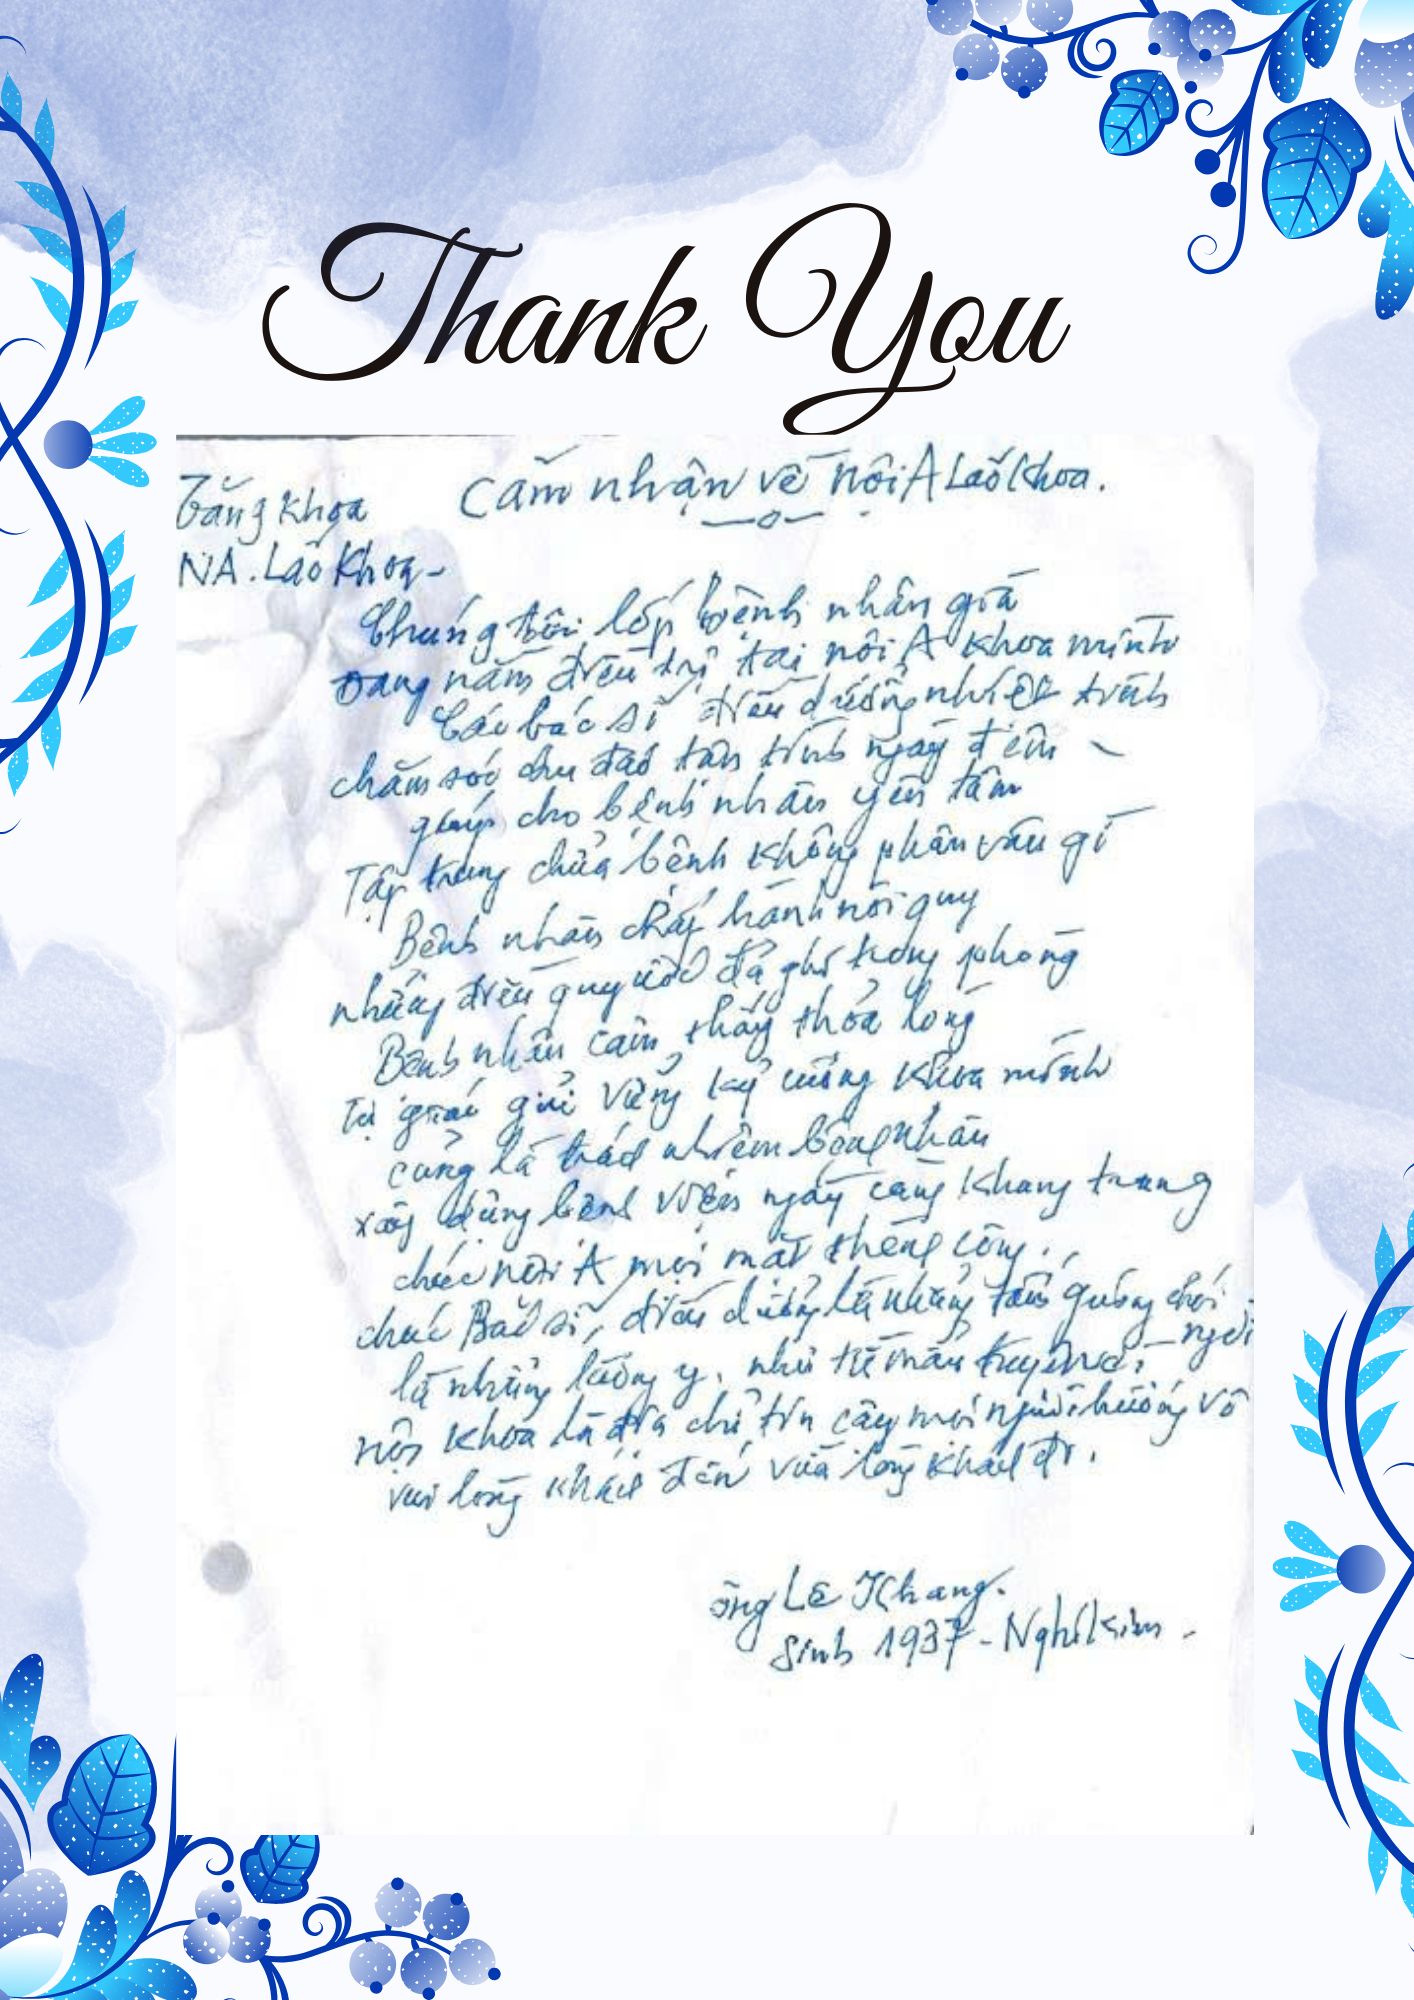 Thank You
Cảm nhận về nội A Lão Khoa.
Tặng khoa
NA. Lão Khoa -
Chúng tôi lớp bệnh nhân già
Đang nằm điều trị tại nội A khoa mình
Các bác sĩ điều dưỡng nhiệt tình
chăm sóc chu đáo tận tình ngày đêm
giúp cho bệnh nhân yên tâm
Tập trung chữa bệnh không phân vân gì
Bệnh nhân chấp hành nội quy
những điều quy ước đã ghi trong phòng
Bệnh nhân cảm thấy thỏa lòng
Tự giác giữ vững kỷ cương khoa mình
cũng là trách nhiệm bệnh nhân
xây dựng bệnh viện ngày càng khang trang
chúc nội A mọi mặt thành công.
chúc Bác sĩ, điều dưỡng là những tấm gương
người
là những lương y, như từ mẫu
nội khoa là địa chỉ tin cậy mọi người hướng về
vui lòng khách đến vừa lòng khách đi.
ông Lê Khang.
sinh 1937 - Nghi Kim -